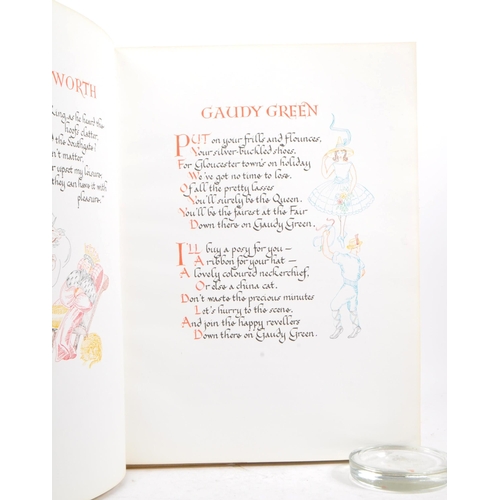 WORTH
King, as he heard the
hoofs clatter,
the Southgate!
n't matter.
upset my leisure
they can have it with
pleasure."
GAUDY GREEN
PUT on your frills and flounces,
Your silver-buckled shoes.
For Gloucester town's on holiday
We've got no time to lose.
Of all the pretty lasses
You'll surely be the Queen.
You'll be the fairest at the Fair
Down there on Gaudy Green.
I'LL buy a posy for you —
A ribbon for your hat —
A lovely coloured neckerchief,
Or else a china cat.
Don't waste the precious minutes
Let's hurry to the scene.
And join the happy revellers
Down there on Gaudy Green.